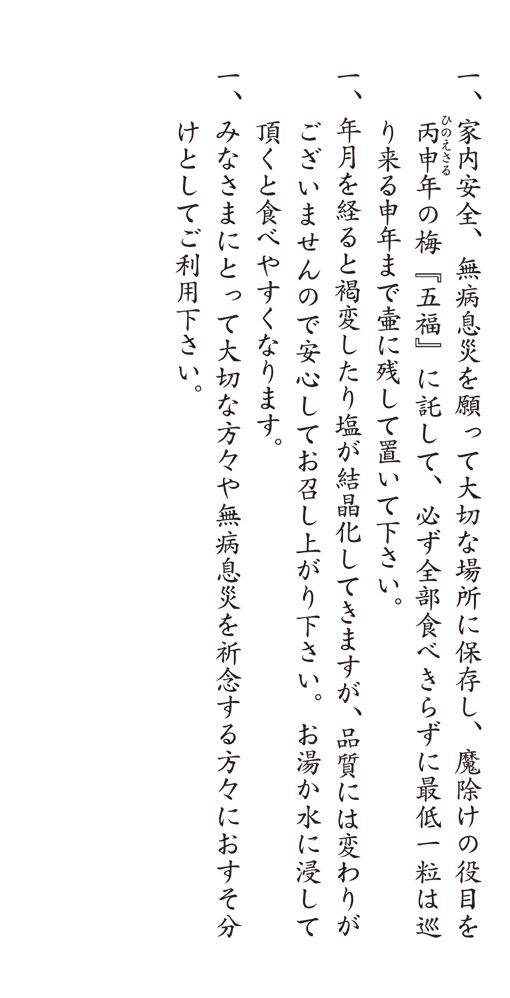 一、家内安全、無病息災を願って大切な場所に保存し、魔除けの役目を
丙申年の梅『五福』に託して、必ず全部食べきらずに最低一粒は巡
ひのえさる
り来る申年まで壷に残して置いて下さい。
一、年月を経ると褐変したり塩が結晶化してきますが、品質には変わりが
ございませんので安心してお召し上がり下さい。お湯か水に浸して
頂くと食べやすくなります。
一、みなさまにとって大切な方々や無病息災を祈念する方々におすそ分
けとしてご利用下さい。